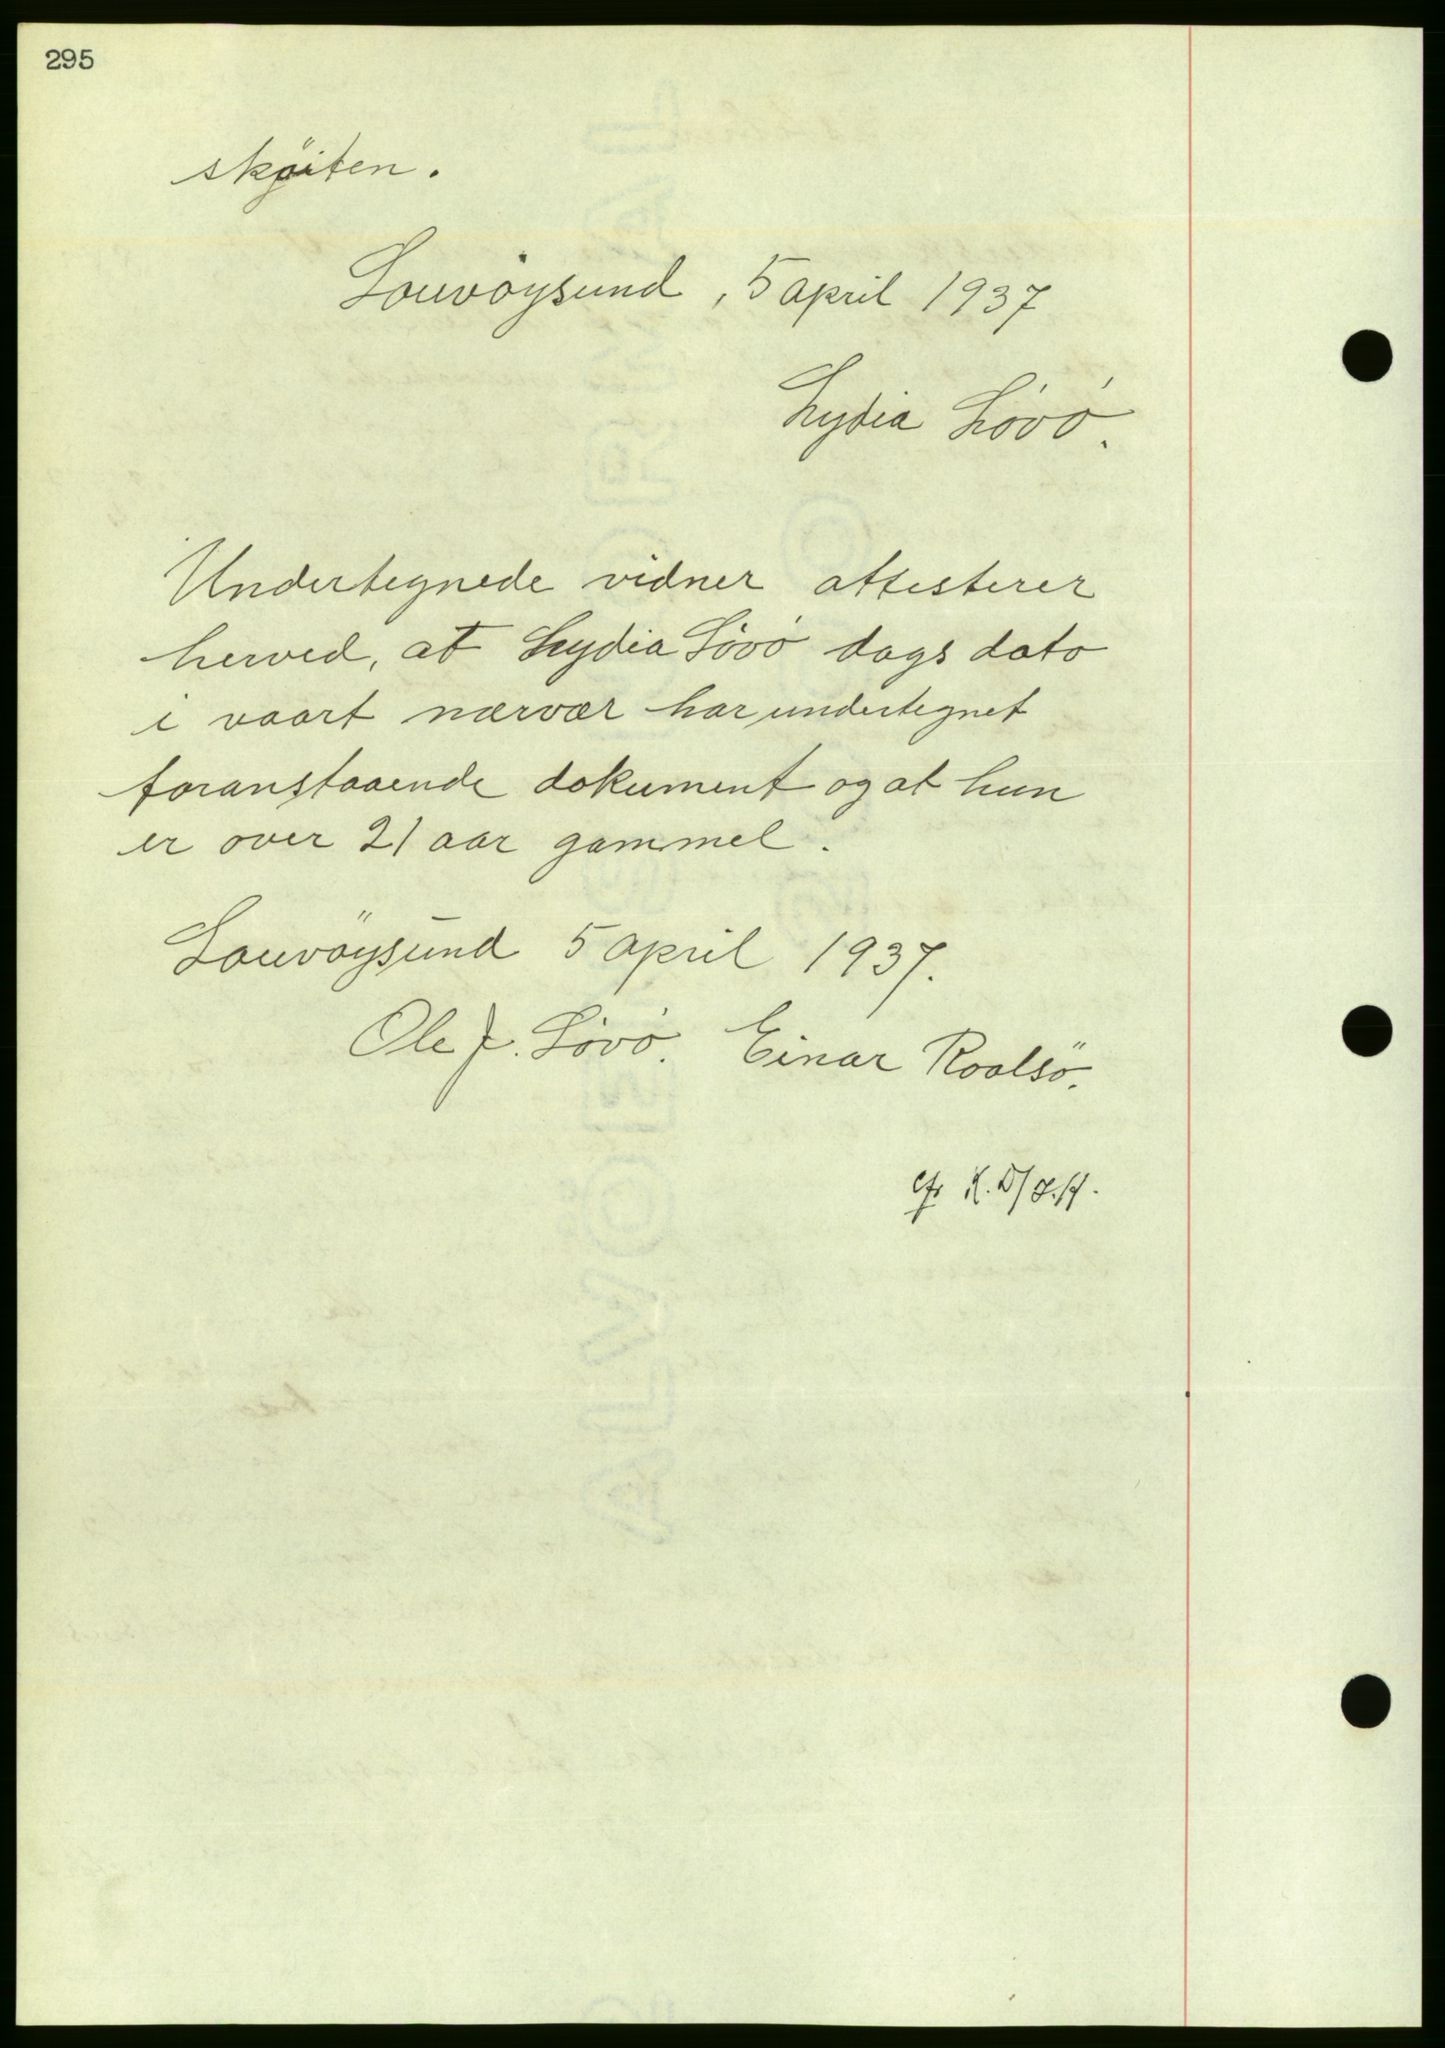 295
sköiten.
Souvöysund, 5 april 1937
Lydia Lövö.
Undertegnede vidner attesterer
herved, at Lydia Lövö dags dato
i vaart nærvær har undertegnet
foranstaaende dokument og at hun
er over 21 aar gammel.
Souvöysund 5 april 1937.
Ole J. Lövö. Einar Roalsö.